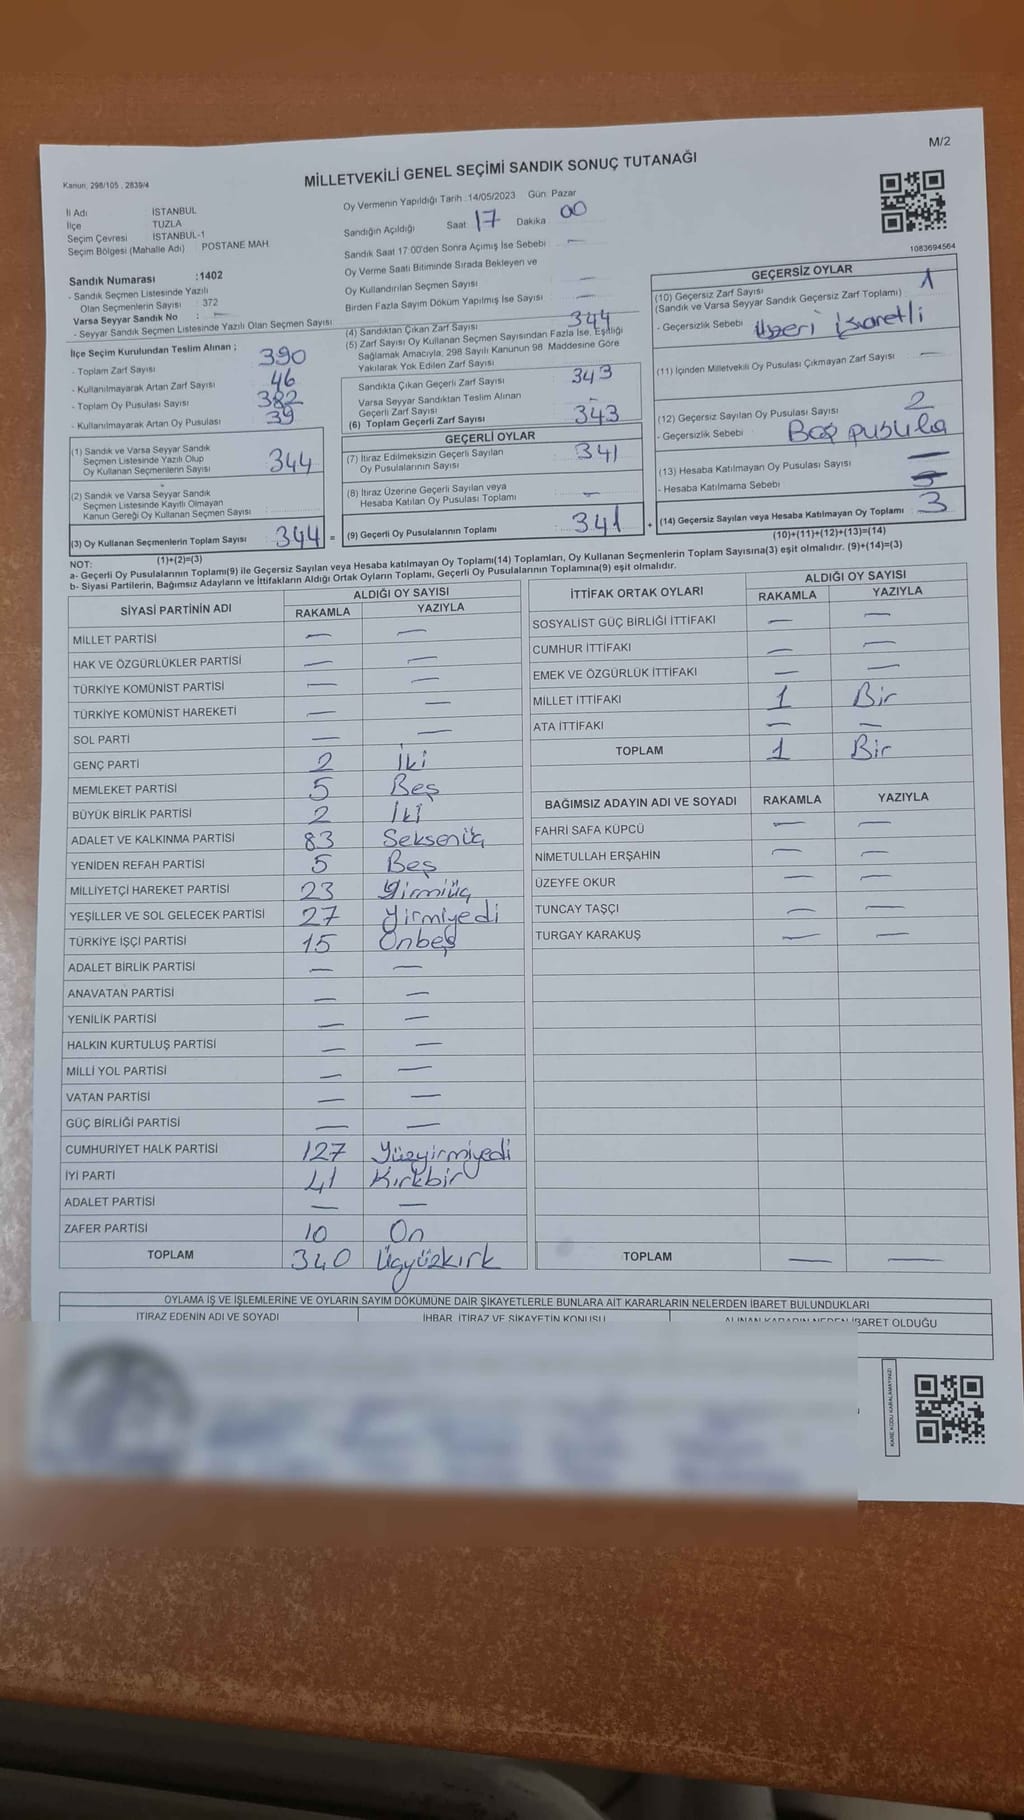 M/2
MİLLETVEKİLİ GENEL SEÇİMİ SANDIK SONUÇ TUTANAĞI
Kanun, 298/105 , 2839/4
İl Adı İSTANBUL
İlçe TUZLA
Seçim Çevresi İSTANBUL-1
Seçim Bölgesi (Mahalle Adı) POSTANE MAH.
Sandık Numarası :1402
- Sandık Seçmen Listesinde Yazılı
Olan Seçmenlerin Sayısı : 372
Varsa Seyyar Sandık No : —
- Seyyar Sandık Seçmen Listesinde Yazılı Olan Seçmen Sayısı:
İlçe Seçim Kurulundan Teslim Alınan ;
- Toplam Zarf Sayısı : 390
- Kullanılmayarak Artan Zarf Sayısı : 46
- Toplam Oy Pusulası Sayısı : 382
- Kullanılmayarak Artan Oy Pusulası : 39
(1) Sandık ve Varsa Seyyar Sandık
Seçmen Listesinde Yazılı Olup
Oy Kullanan Seçmenlerin Sayısı : 344
(2) Sandık ve Varsa Seyyar Sandık
Seçmen Listesinde Kayıtlı Olmayan
Kanun Gereği Oy Kullanan Seçmen Sayısı :
(3) Oy Kullanan Seçmenlerin Toplam Sayısı : 344 =
(1)+(2)=(3)
Oy Vermenin Yapıldığı Tarih :14/05/2023 Gün: Pazar
Sandığın Açıldığı Saat: 17 Dakika: 00
Sandık Saat 17:00'den Sonra Açımış İse Sebebi : —
Oy Verme Saati Bitiminde Sırada Bekleyen ve
Oy Kullandırılan Seçmen Sayısı : —
Birden Fazla Sayım Döküm Yapılmış İse Sayısı : —
(4) Sandıktan Çıkan Zarf Sayısı : 344
(5) Zarf Sayısı Oy Kullanan Seçmen Sayısından Fazla İse, Eşitliği
Sağlamak Amacıyla, 298 Sayılı Kanunun 98. Maddesine Göre
Yakılarak Yok Edilen Zarf Sayısı :
Sandıkta Çıkan Geçerli Zarf Sayısı : 343
Varsa Seyyar Sandıktan Teslim Alınan
Geçerli Zarf Sayısı : -
(6) Toplam Geçerli Zarf Sayısı : 343
GEÇERLİ OYLAR
(7) İtiraz Edilmeksizin Geçerli Sayılan
Oy Pusulalarının Sayısı : 341
(8) İtiraz Üzerine Geçerli Sayılan ve
Hesaba Katılan Oy Pusulası Toplamı : —
(9) Geçerli Oy Pusulalarının Toplamı : 341 +
1083694564
GEÇERSİZ OYLAR
(10) Geçersiz Zarf Sayısı : 1
(Sandık ve Varsa Seyyar Sandık Geçersiz Zarf Toplamı)
- Geçersizlik Sebebi : Üzeri İşaretli
(11) İçinden Milletvekili Oy Pusulası Çıkmayan Zarf Sayısı : —
(12) Geçersiz Sayılan Oy Pusulası Sayısı : 2
- Geçersizlik Sebebi : Boş pusula
(13) Hesaba Katılmayan Oy Pusulası Sayısı : —
- Hesaba Katılmama Sebebi :
(14) Geçersiz Sayılan veya Hesaba Katılmayan Oy Toplamı : 3
(10)+(11)+(12)+(13)=(14)
NOT:
a- Geçerli Oy Pusulalarının Toplamı(9) ile Geçersiz Sayılan veya Hesaba katılmayan Oy Toplamı(14) Toplamları, Oy Kullanan Seçmenlerin Toplam Sayısına(3) eşit olmalıdır. (9)+(14)=(3)
b- Siyasi Partilerin, Bağımsız Adayların ve İttifakların Aldığı Ortak Oyların Toplamı, Geçerli Oy Pusulalarının Toplamına(9) eşit olmalıdır.
SİYASİ PARTİNİN ADI ALDIĞI OY SAYISI
RAKAMLA YAZIYLA
MİLLET PARTİSİ — —
HAK VE ÖZGÜRLÜKLER PARTİSİ — —
TÜRKİYE KOMÜNİST PARTİSİ — —
TÜRKİYE KOMÜNİST HAREKETİ — —
SOL PARTİ — —
GENÇ PARTİ 2 İki
MEMLEKET PARTİSİ 5 Beş
BÜYÜK BİRLİK PARTİSİ 2 İki
ADALET VE KALKINMA PARTİSİ 83 Seksenüç
YENİDEN REFAH PARTİSİ 5 Beş
MİLLİYETÇİ HAREKET PARTİSİ 23 Yirmiüç
YEŞİLLER VE SOL GELECEK PARTİSİ 27 Yirmiyedi
TÜRKİYE İŞÇİ PARTİSİ 15 Onbeş
ADALET BİRLİK PARTİSİ — —
ANAVATAN PARTİSİ — —
YENİLİK PARTİSİ — —
HALKIN KURTULUŞ PARTİSİ — —
MİLLİ YOL PARTİSİ — —
VATAN PARTİSİ — —
GÜÇ BİRLİĞİ PARTİSİ — —
CUMHURİYET HALK PARTİSİ 127 Yüzyirmiyedi
İYİ PARTİ 41 Kırkbir
ADALET PARTİSİ — —
ZAFER PARTİSİ 10 On
TOPLAM 340 Üçyüzkırk
İTTİFAK ORTAK OYLARI ALDIĞI OY SAYISI
RAKAMLA YAZIYLA
SOSYALİST GÜÇ BİRLİĞİ İTTİFAKI — —
CUMHUR İTTİFAKI — —
EMEK VE ÖZGÜRLÜK İTTİFAKI — —
MİLLET İTTİFAKI 1 Bir
ATA İTTİFAKI — —
TOPLAM 1 Bir
BAĞIMSIZ ADAYIN ADI VE SOYADI RAKAMLA YAZIYLA
FAHRİ SAFA KÜPCÜ — —
NİMETULLAH ERŞAHİN — —
ÜZEYFE OKUR — —
TUNCAY TAŞÇI — —
TURGAY KARAKUŞ — —
TOPLAM — —
OYLAMA İŞ VE İŞLEMLERİNE VE OYLARIN SAYIM DÖKÜMÜNE DAİR ŞİKAYETLERLE BUNLARA AİT KARARLARIN NELERDEN İBARET BULUNDUKLARI
İTİRAZ EDENİN ADI VE SOYADI İHBAR, İTİRAZ VE ŞİKAYETİN KONUSU ALINAN KARARIN NEDEN İBARET OLDUĞU
KARE KODU KARALAMAYINIZ!